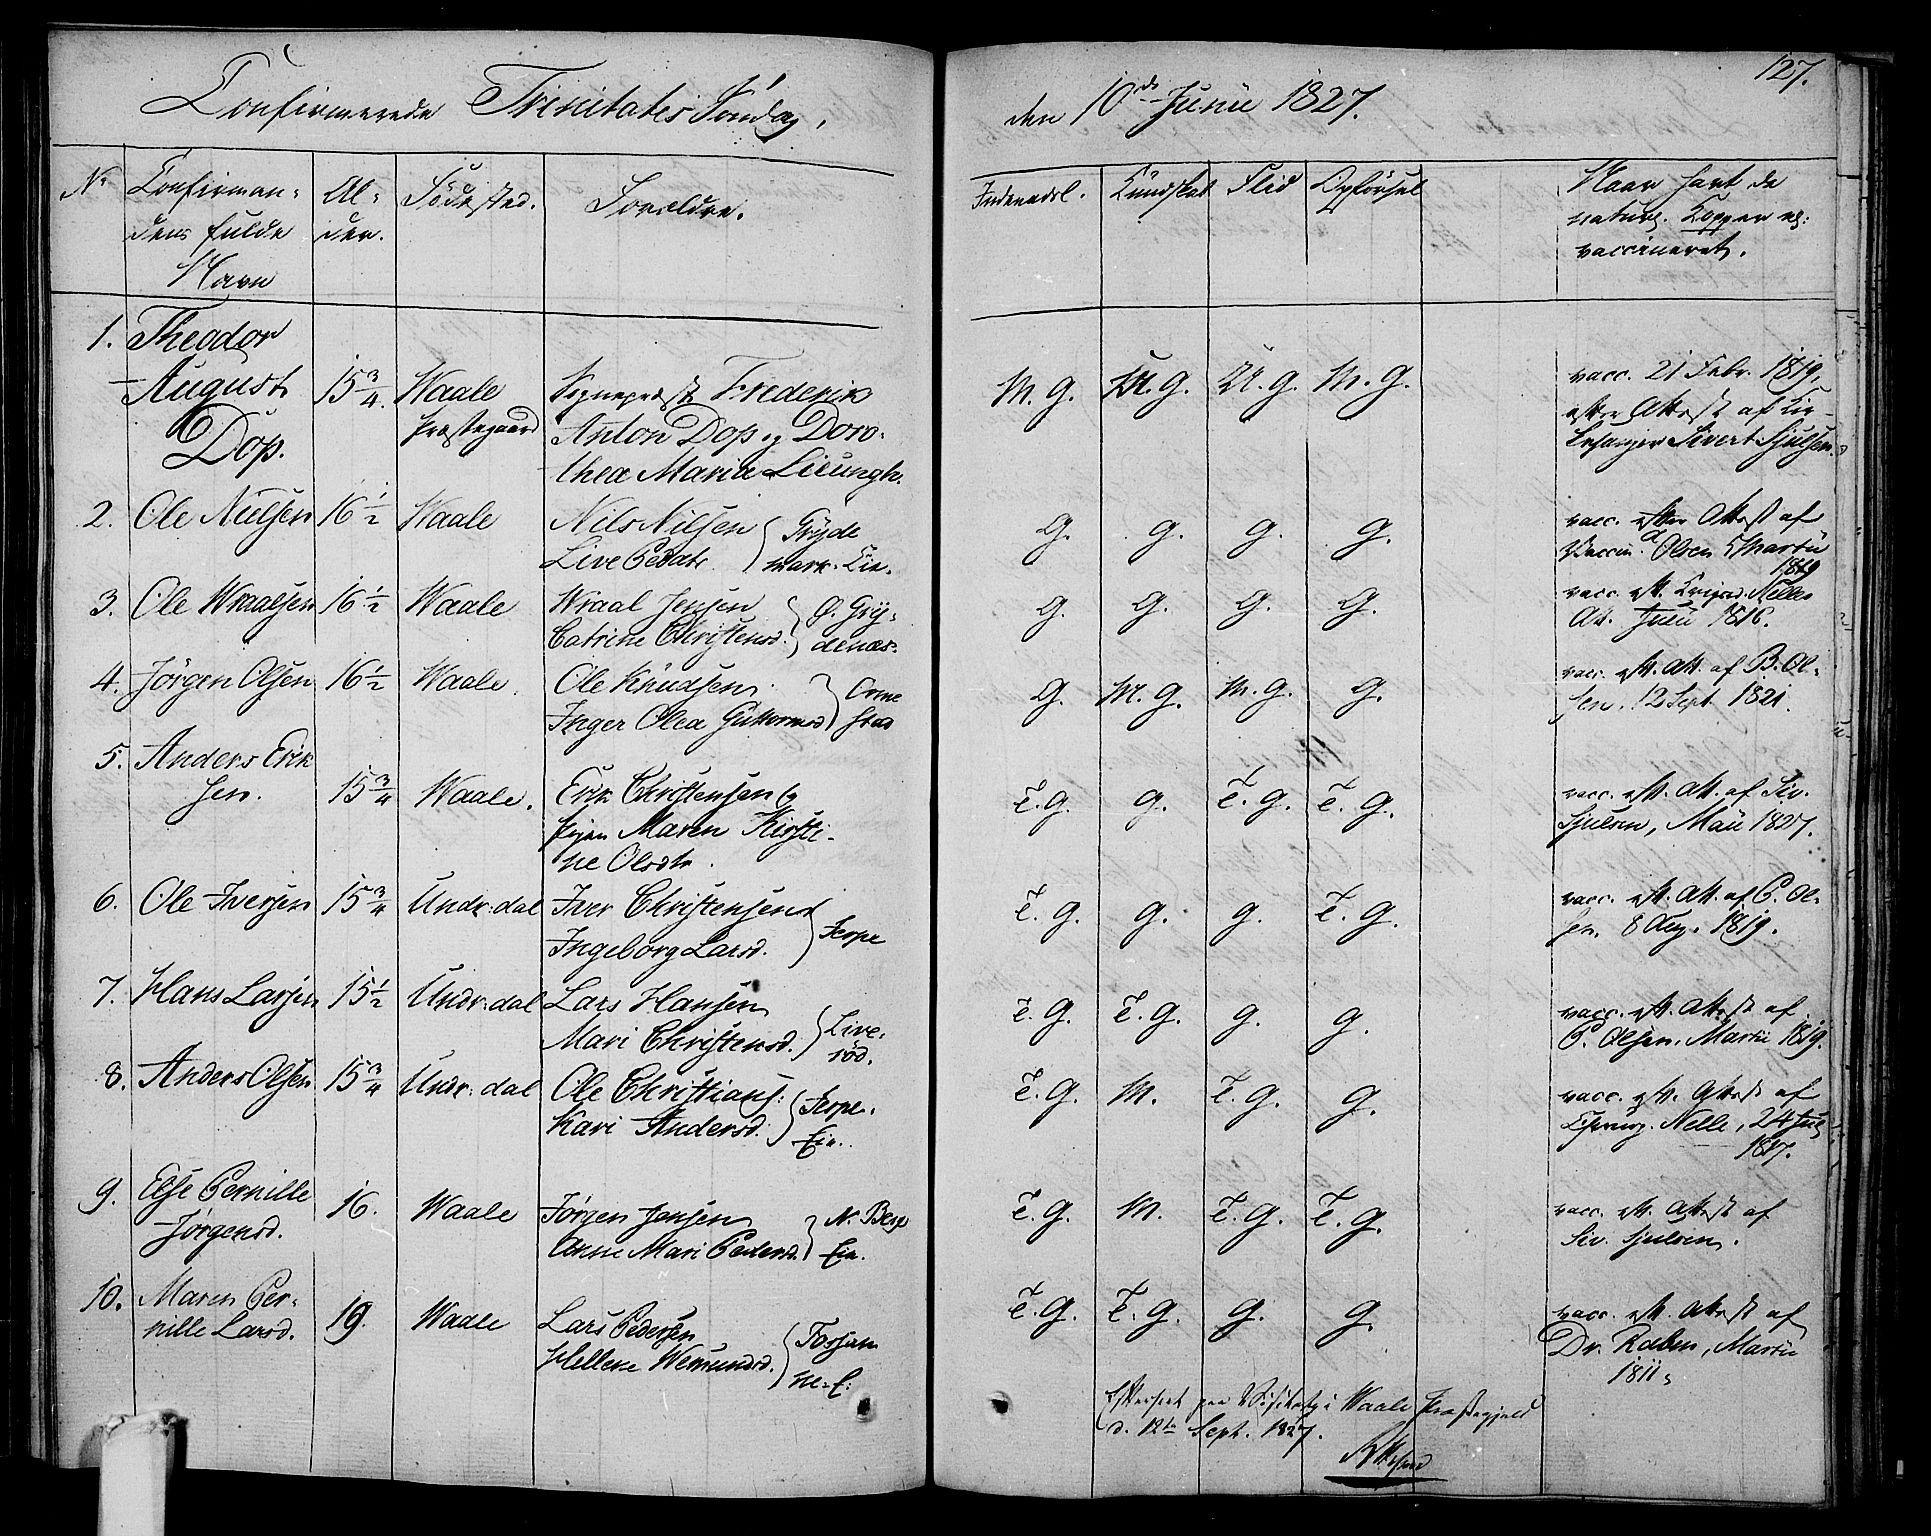 127.
Confirmerede Trinitatis Søndag,
den 10de Junii 1827.
No
Confirman-
dens fulde
Navn
Al-
der.
Födested.
Forældre.
Indenadsl.
Kundskab
Flid
Opførsel
Naar havt de
naturl. Kopper el:
vaccineret.
1. Theodor
August
Dop.
15 3/4.
Waale
Præstegaard
Sognepræst Frederik
Anton Dop og Doro-
thea Maria Lieungh.
M. G. M. G. U. G. M. G.
vacc. 21 Febr. 1819,
efter Attest af
Sivert Sjulsen
2. Ole Nielsen 16 1/2 Waale
Nils Nilsen
Live Peddtr.
Gryde
mark. Ein.
G. G. G. G.
vacc. efter Attest af
Vaccin. Olsen Martii
1819
3. Ole Wraalsen 16 1/2 Waale
Wraal Jensen
Catrine Christensd.
Ø. Gry-
denæs.
G. G. G. G.
vacc. eft. Nelles
Att. Junii 1816.
4. Jörgen Olsen 16 1/2 Waale.
Ole Knudsen
Inger Olea Guttormsd
stad
G. M. G. M. G. G.
vacc. eft. Att. af P. Ol-
sen. 12 Sept. 1821.
5. Anders Erik
sen.
15 3/4 Waale.
Erik Christensen og
Pigen Maren Kirsti-
ne Olsdtr.
T. G. G. T. G. T. G.
vacc. eft. Att. af Siv.
Sjulsen, Maii 1827.
6. Ole Iversen 15 3/4 Undr: dal
Iver Christensen
Ingeborg Larsd.
Jerpe
T. G. G. G. T. G.
vacc. eft. Att. af P. Ol-
sen. 8 Aug. 1819.
7. Hans Larsen 15 1/2 Undr: dal
Lars Hansen
Mari Christensd.
Live-
röd.
T. G. T. G. G. G.
vacc. eft. Attest af
P. Olsen, Martii 1819.
8. Anders Olsen 15 3/4 Undr: dal
Ole Christians:
Kari Andersd.
Jerpe.
Ein.
T. G. M. T. G. G.
vacc. eft. Attest af
Nelle, 24 Jul
1817.
9. Else Pernille
Jørgensd.
16. Waale
Jørgen Jensen
Anne Mari Pedersd.
N. Berg
Ein.
T. G. M. T. G. T. G.
vacc. eft. Attest af
Siv. Sjulsen.
10. Maren Per-
nille Larsd.
19. Waale
Lars Pedersen
Hellene Wemundsd.
ne. E:
T. G. T. G. G. G.
vacc. eft. Attest af
Dr. Raben, Martii
1811.
Efterseet paa Visitatz i Waale Præstegjeld
d. 12te Sept. 1827.